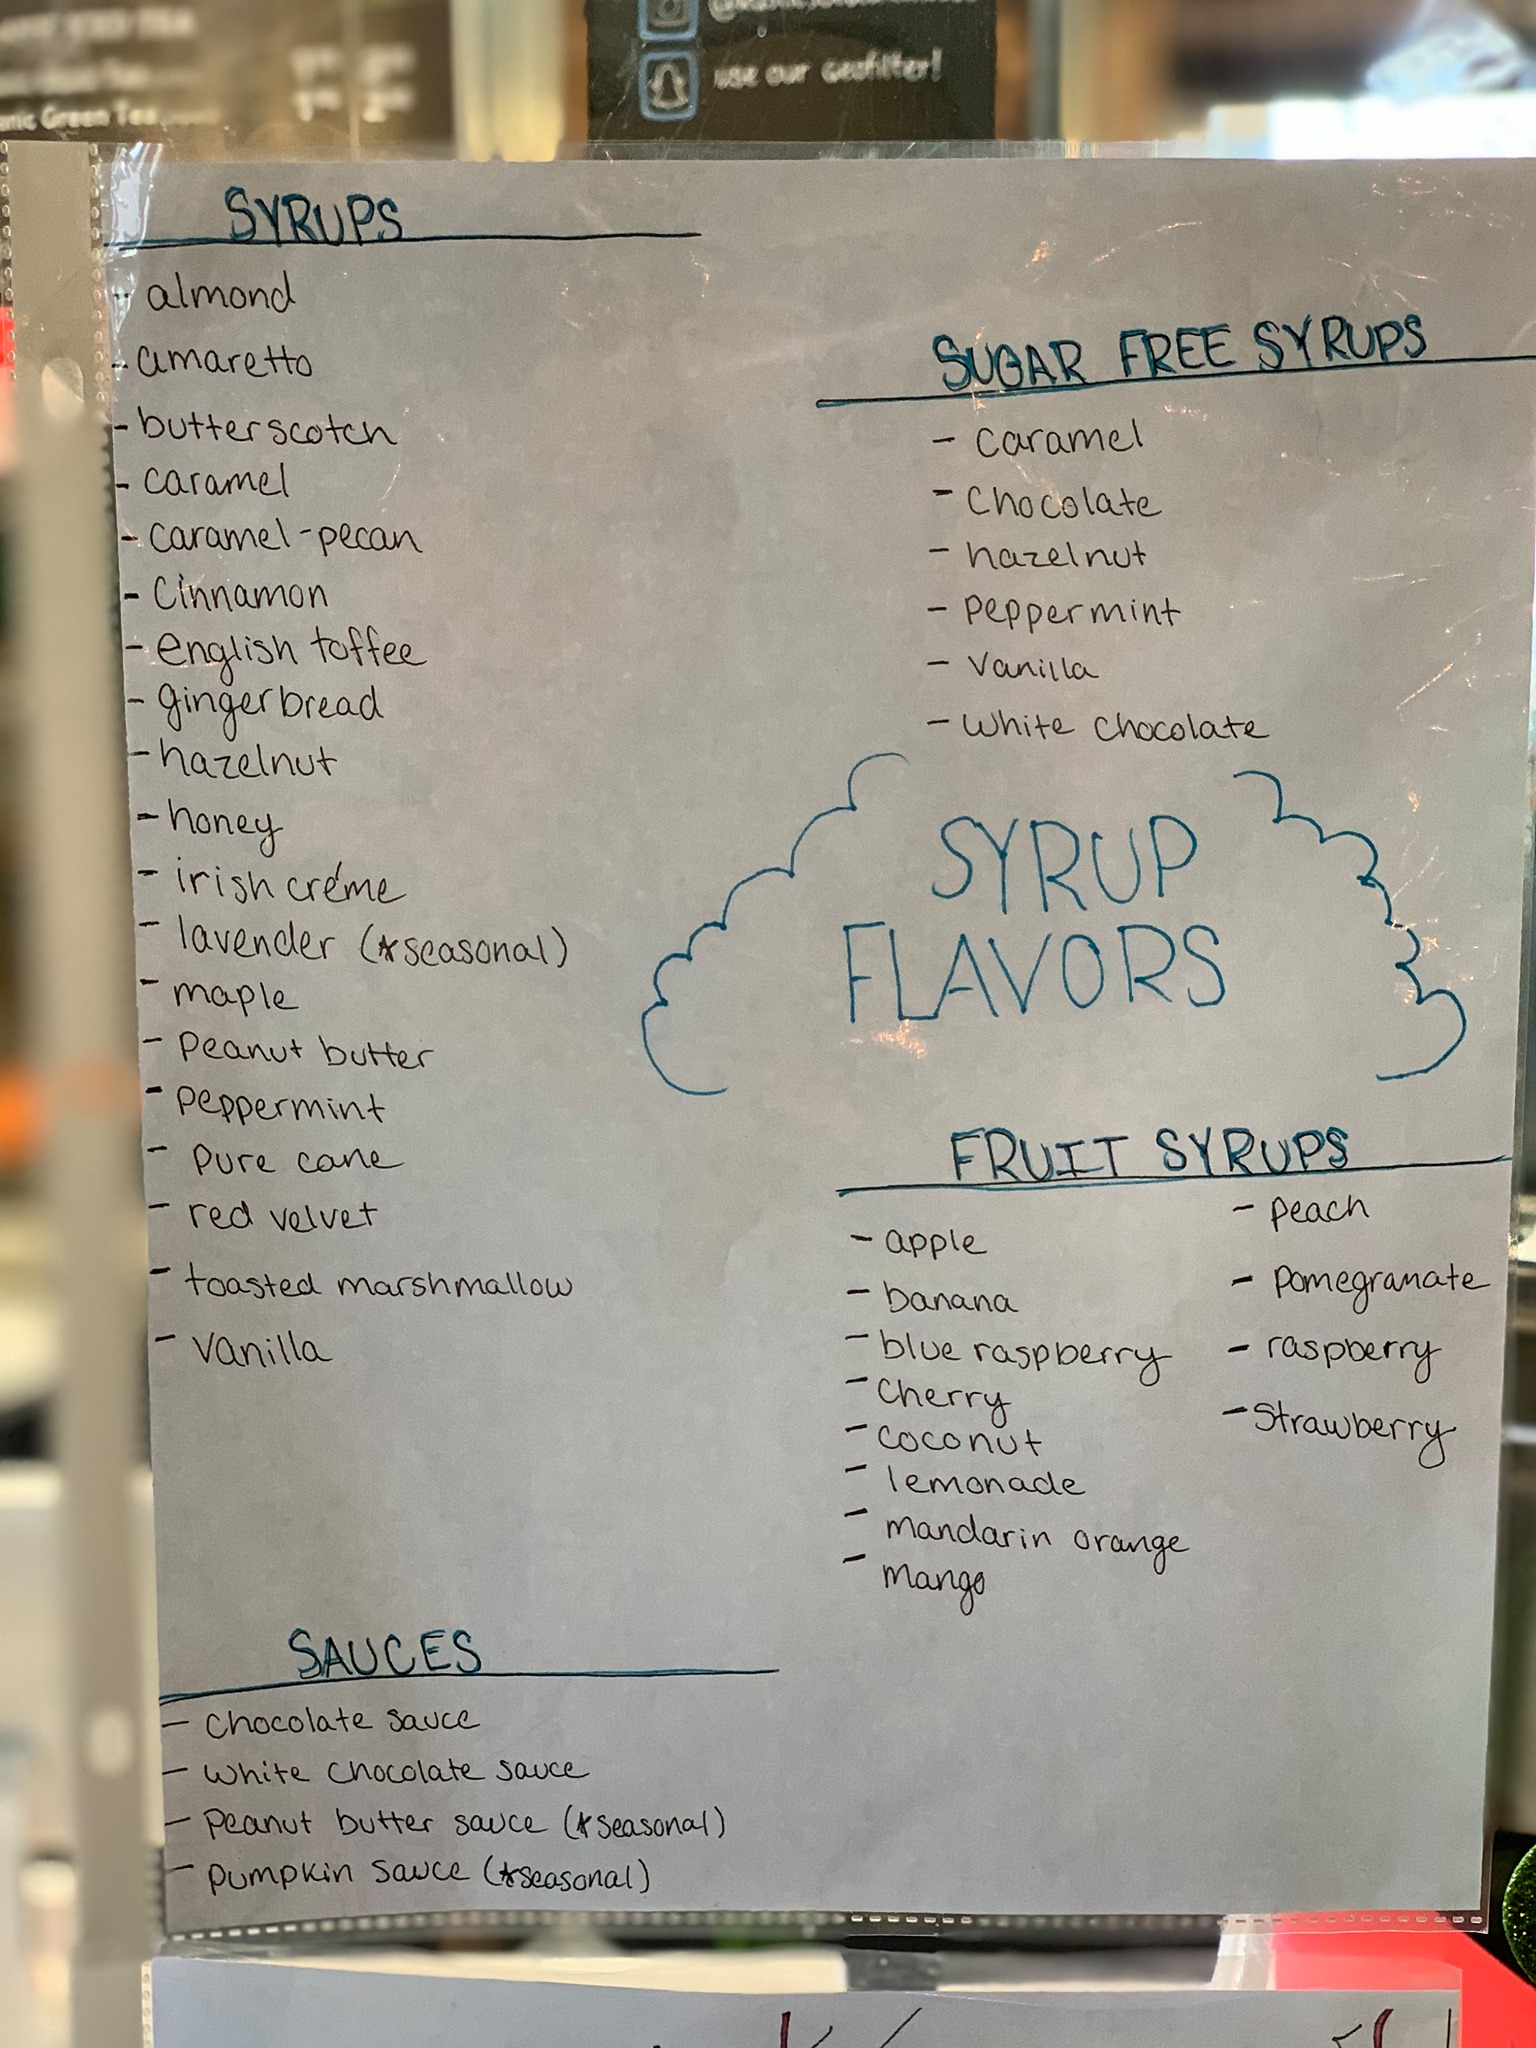 use our Geofilter!
Green Tea
SYRUPS
- almond
- amaretto
- butterscotch
- caramel
- caramel-pecan
- cinnamon
- english toffee
- gingerbread
- hazelnut
- honey
- irish créme
- lavender (*seasonal)
- maple
- peanut butter
- peppermint
- pure cane
- red velvet
- toasted marshmallow
- vanilla
SAUCES
- chocolate sauce
- white chocolate sauce
- peanut butter sauce (*seasonal)
- pumpkin sauce (*seasonal)
SUGAR FREE SYRUPS
- caramel
- chocolate
- hazelnut
- peppermint
- vanilla
- white chocolate
SYRUP
FLAVORS
FRUIT SYRUPS
- apple
- banana
- blue raspberry
- cherry
- coconut
- lemonade
- mandarin orange
- mango
- peach
- pomegranate
- raspberry
- strawberry